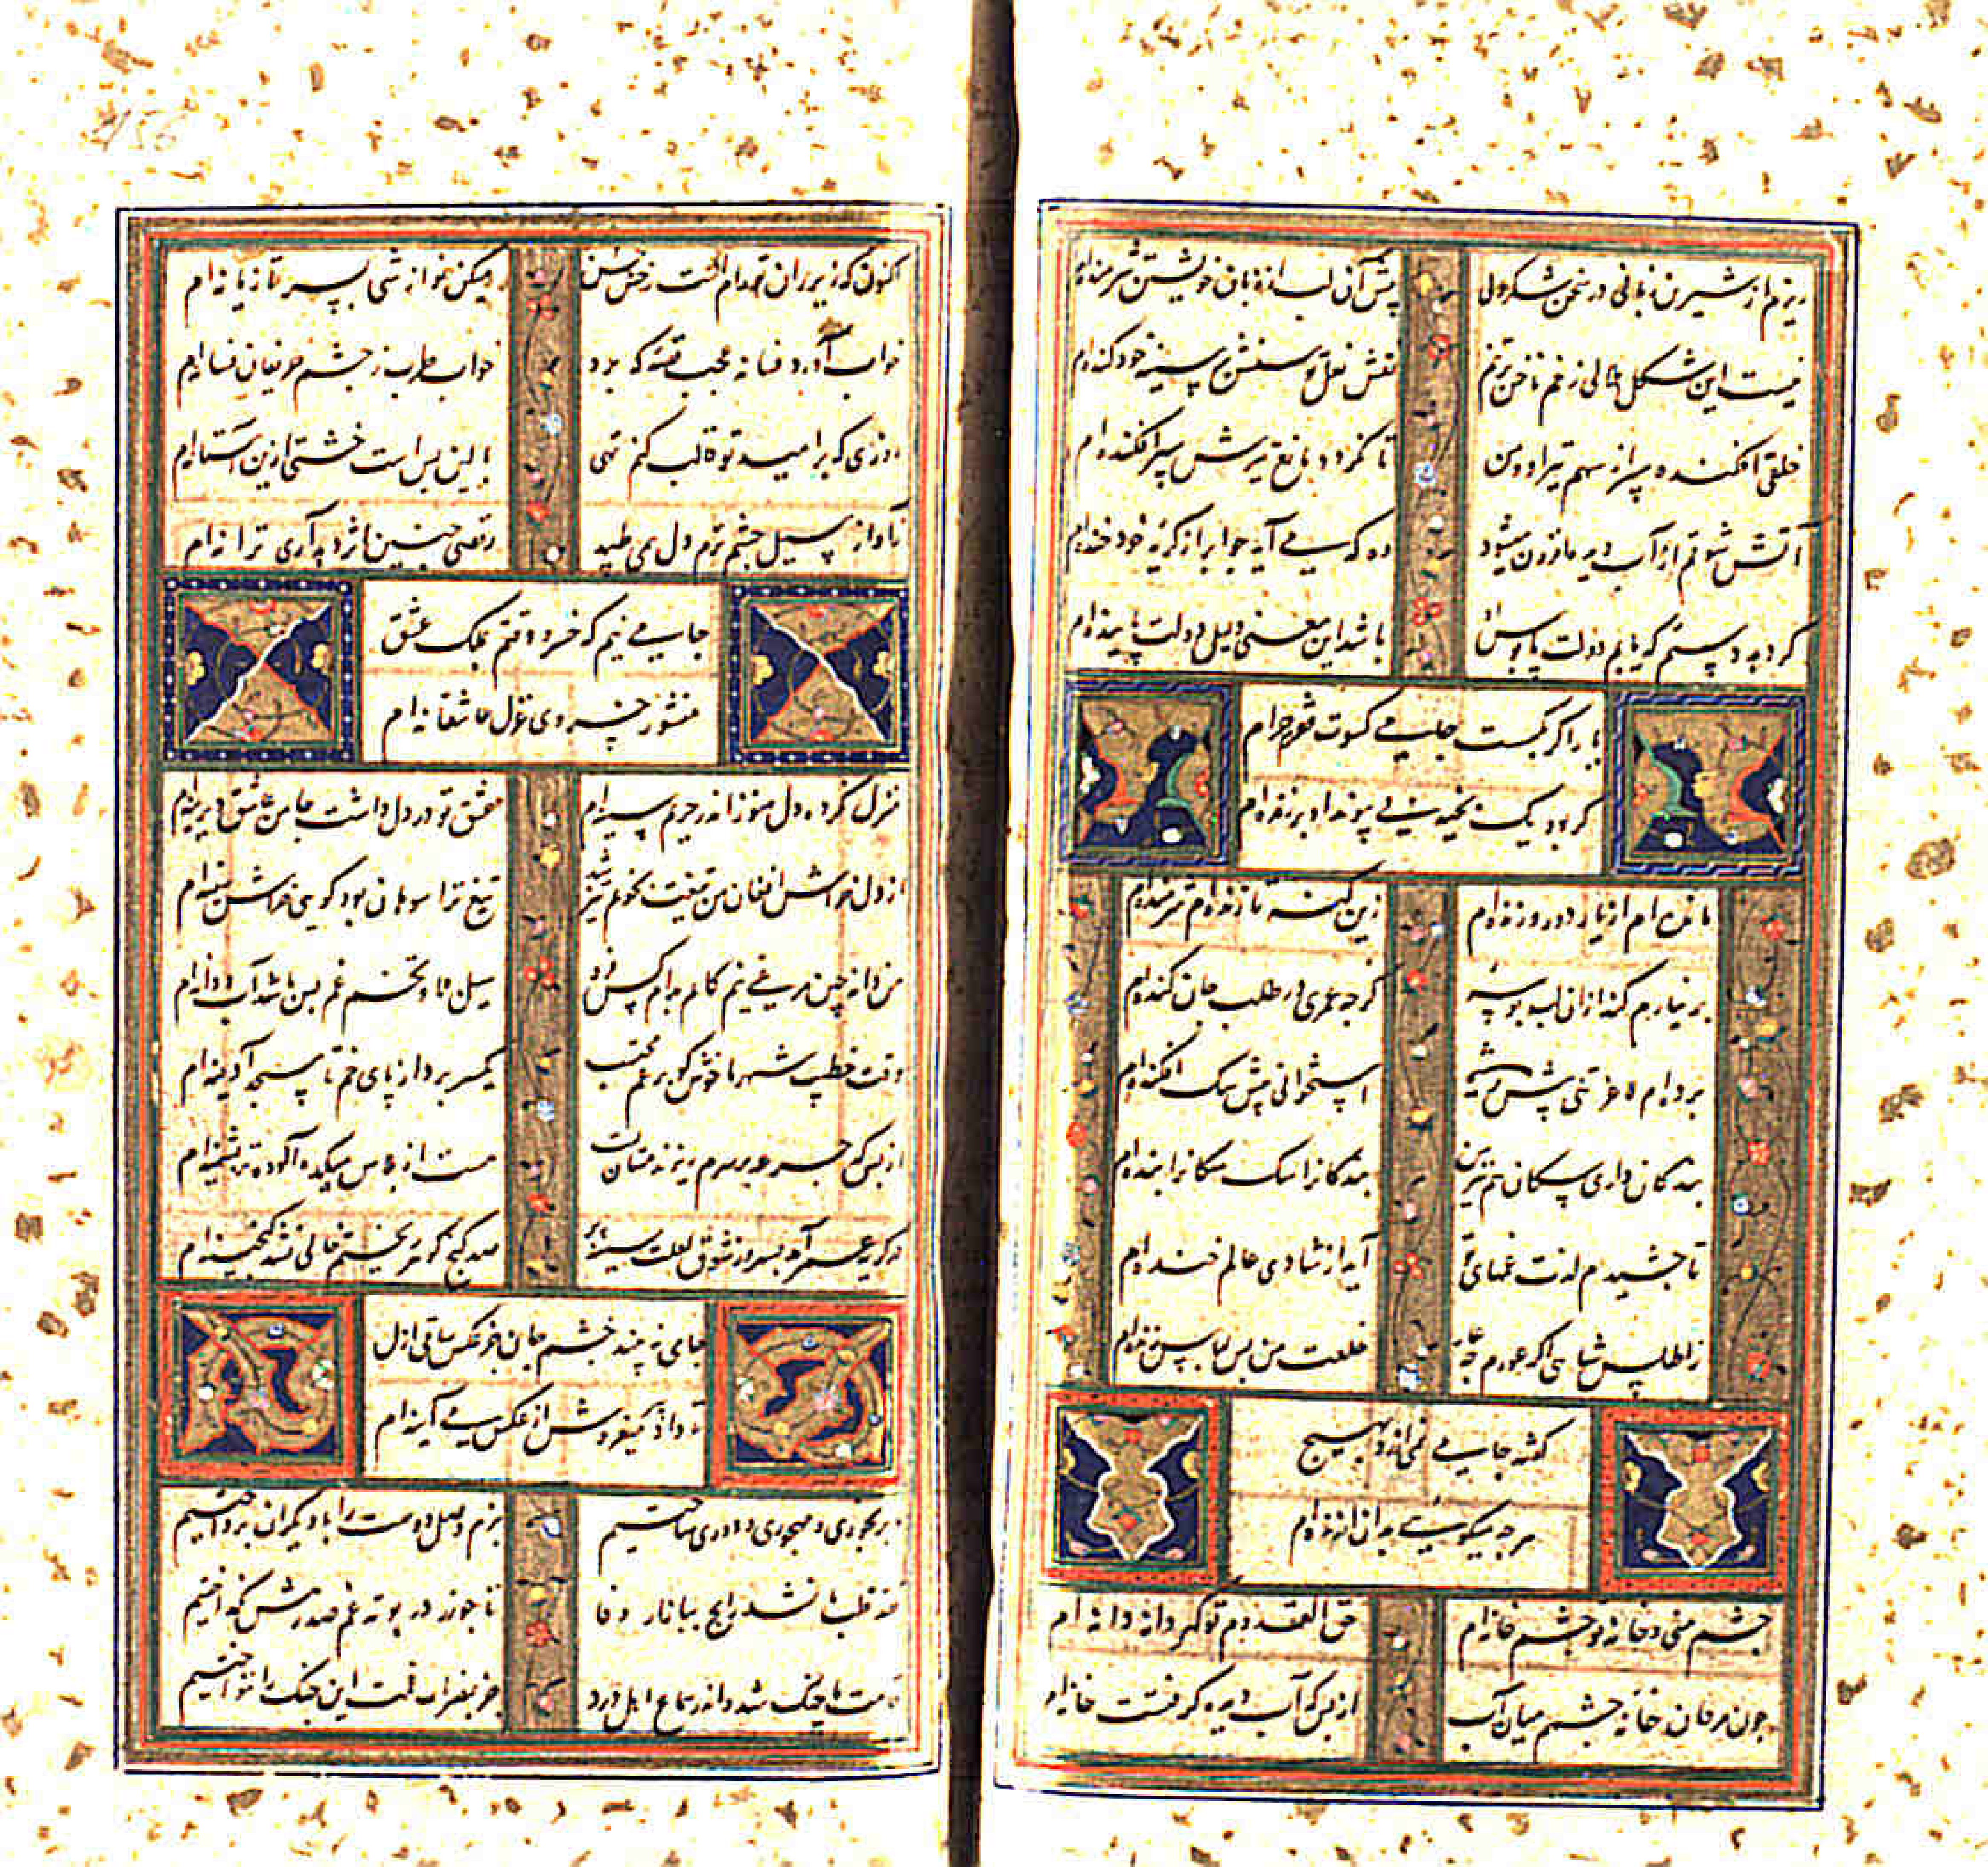 ریزم از شیرین زبانی در سخن شکر ولی
پیش آن لب از زبان خویشتن شرمنده ام
نیست این شکل هلالی زخم ناخن بر تنم
نقش نعل توسنش بر سینه خود کنده ام
خلقی افکنده سپر از سهم تیر او و من
تا نگردد مانع تیرش سپر افکنده ام
آتش شوقم از آب دیده افزون میشود
ده که می آید چو ابر از گریه خود خنده ام
گر دهد دستم که یابم دولت پابوس او
باشد این معنی دلیل دولت پاینده ام
جامی کسوت فقرم حرام
گر بود یک بخیه بی پیوند او بر ژنده ام
مانده ام از یار دور و زنده ام
زین گنه تا زنده ام شرمنده ام
بر نیارم کند از ان لب بوسه
گرچه عمری در طلب جان کنده ام
برده ام لاغر تنی پیش
استخوانی پیش سگ افکنده ام
بندگان داری سگان هم نیز من
بندگانرا سگ سگانرا بنده ام
تا چشیدم لذت غمهای تو
آید از شادی عالم خنده ام
ز اطلس شاهی اگر عورم چه عار
خلعت من بس لباس ژنده ام
گفته جامی نمی ارزد بهیچ
هر چه میگویی بدان ارزنده ام
چشم منی و خانه تو چشم خانه ام
حق القدوم تو گهر دانه دانه ام
چون مردمان خانه چشم میان آب
از بس که آب دیده گرفتست خانه ام
اکنون که زیر ران تو رام است رخش حسن
میکن نوازشی بسر تازیانه ام
خواب آورد فسانه عجب قصه که برد
خواب طرب ز چشم حریفان فسانه ام
روزی که بر امید تو قالب کنم تهی
بالین بس است خشتی ازین آستانه ام
ز آواز سیل چشم ترم دل همی طپد
رقصی چنین اثر دهد آری ترانه ام
جامی منم که خسرو وقتم بملک عشق
منشور خسروی غزل عاشقانه ام
منزل نکرده دل هنوز اندر حریم سینه ام
عشق تو در دل داشت جا من عاشق دیرینه ام
از دل خراش افغان من تیغت نکو هم تیز شد
تیغ ترا سوهان بود گویی خراش سینه ام
من دانه چین مرغی نیم کارم بدام کس فرود
سیل و تخم غم بس باشد آب و دانه ام
وقت خطیب شهر ما خوش کو برغم محتسب
یکسر برد از پای خم تا مسجد آدینه ام
از بس که جرعه بر سرم ریزند مستان
مست از پلاس میکده آلوده تر پشمینه ام
در گریه عمر آمد بسر وز شوق لعلت سینه پر
صد گنج گوهر ریختم خالی نشد گنجینه ام
جامی نه بیند چشم جان جز عکس ساقی ازل
تا داد پیر میفروش از عکس می آیینه ام
رنجوری و مهجوری و دوری ساختیم
بزم وصل دوست را با دیگران پرداختیم
نقد قلب ما نشد رایج ببازار وفا
تا چو زر در بوته غم صد رهش نگداختیم
قامت ما چنگ شد و اندر سماع اهل درد
جز بمضراب این چنگ را ننواختیم